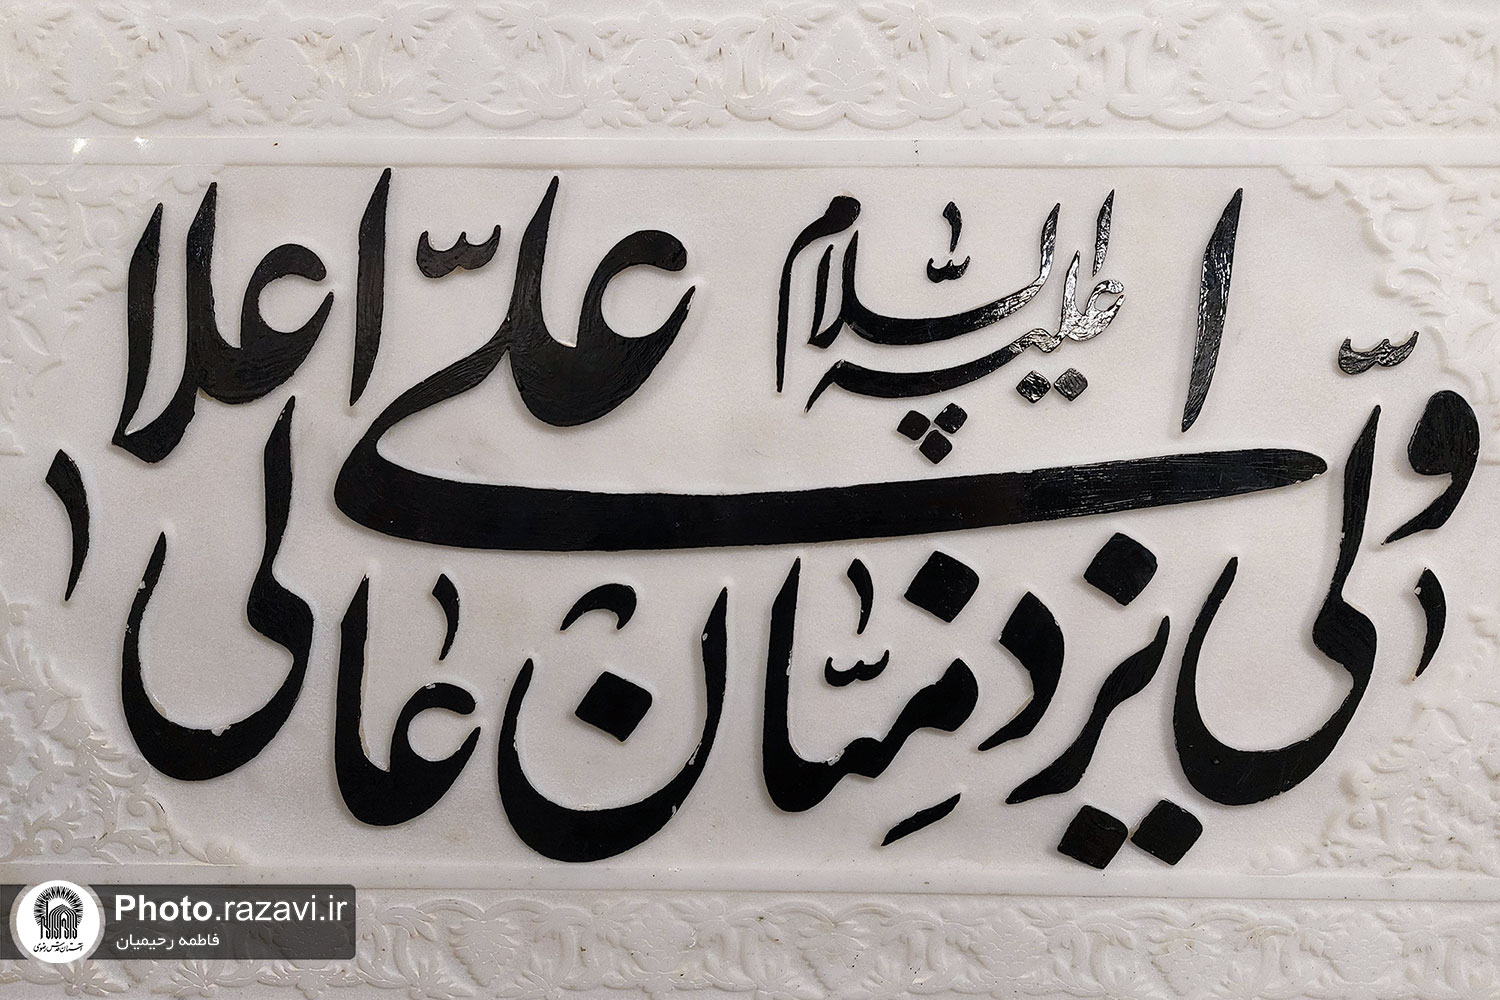 ولیّ ایزد منّان علیّ عالی اعلا
علیه السّلام
Photo.razavi.ir
فاطمه رحیمیان
آستان قدس رضوی